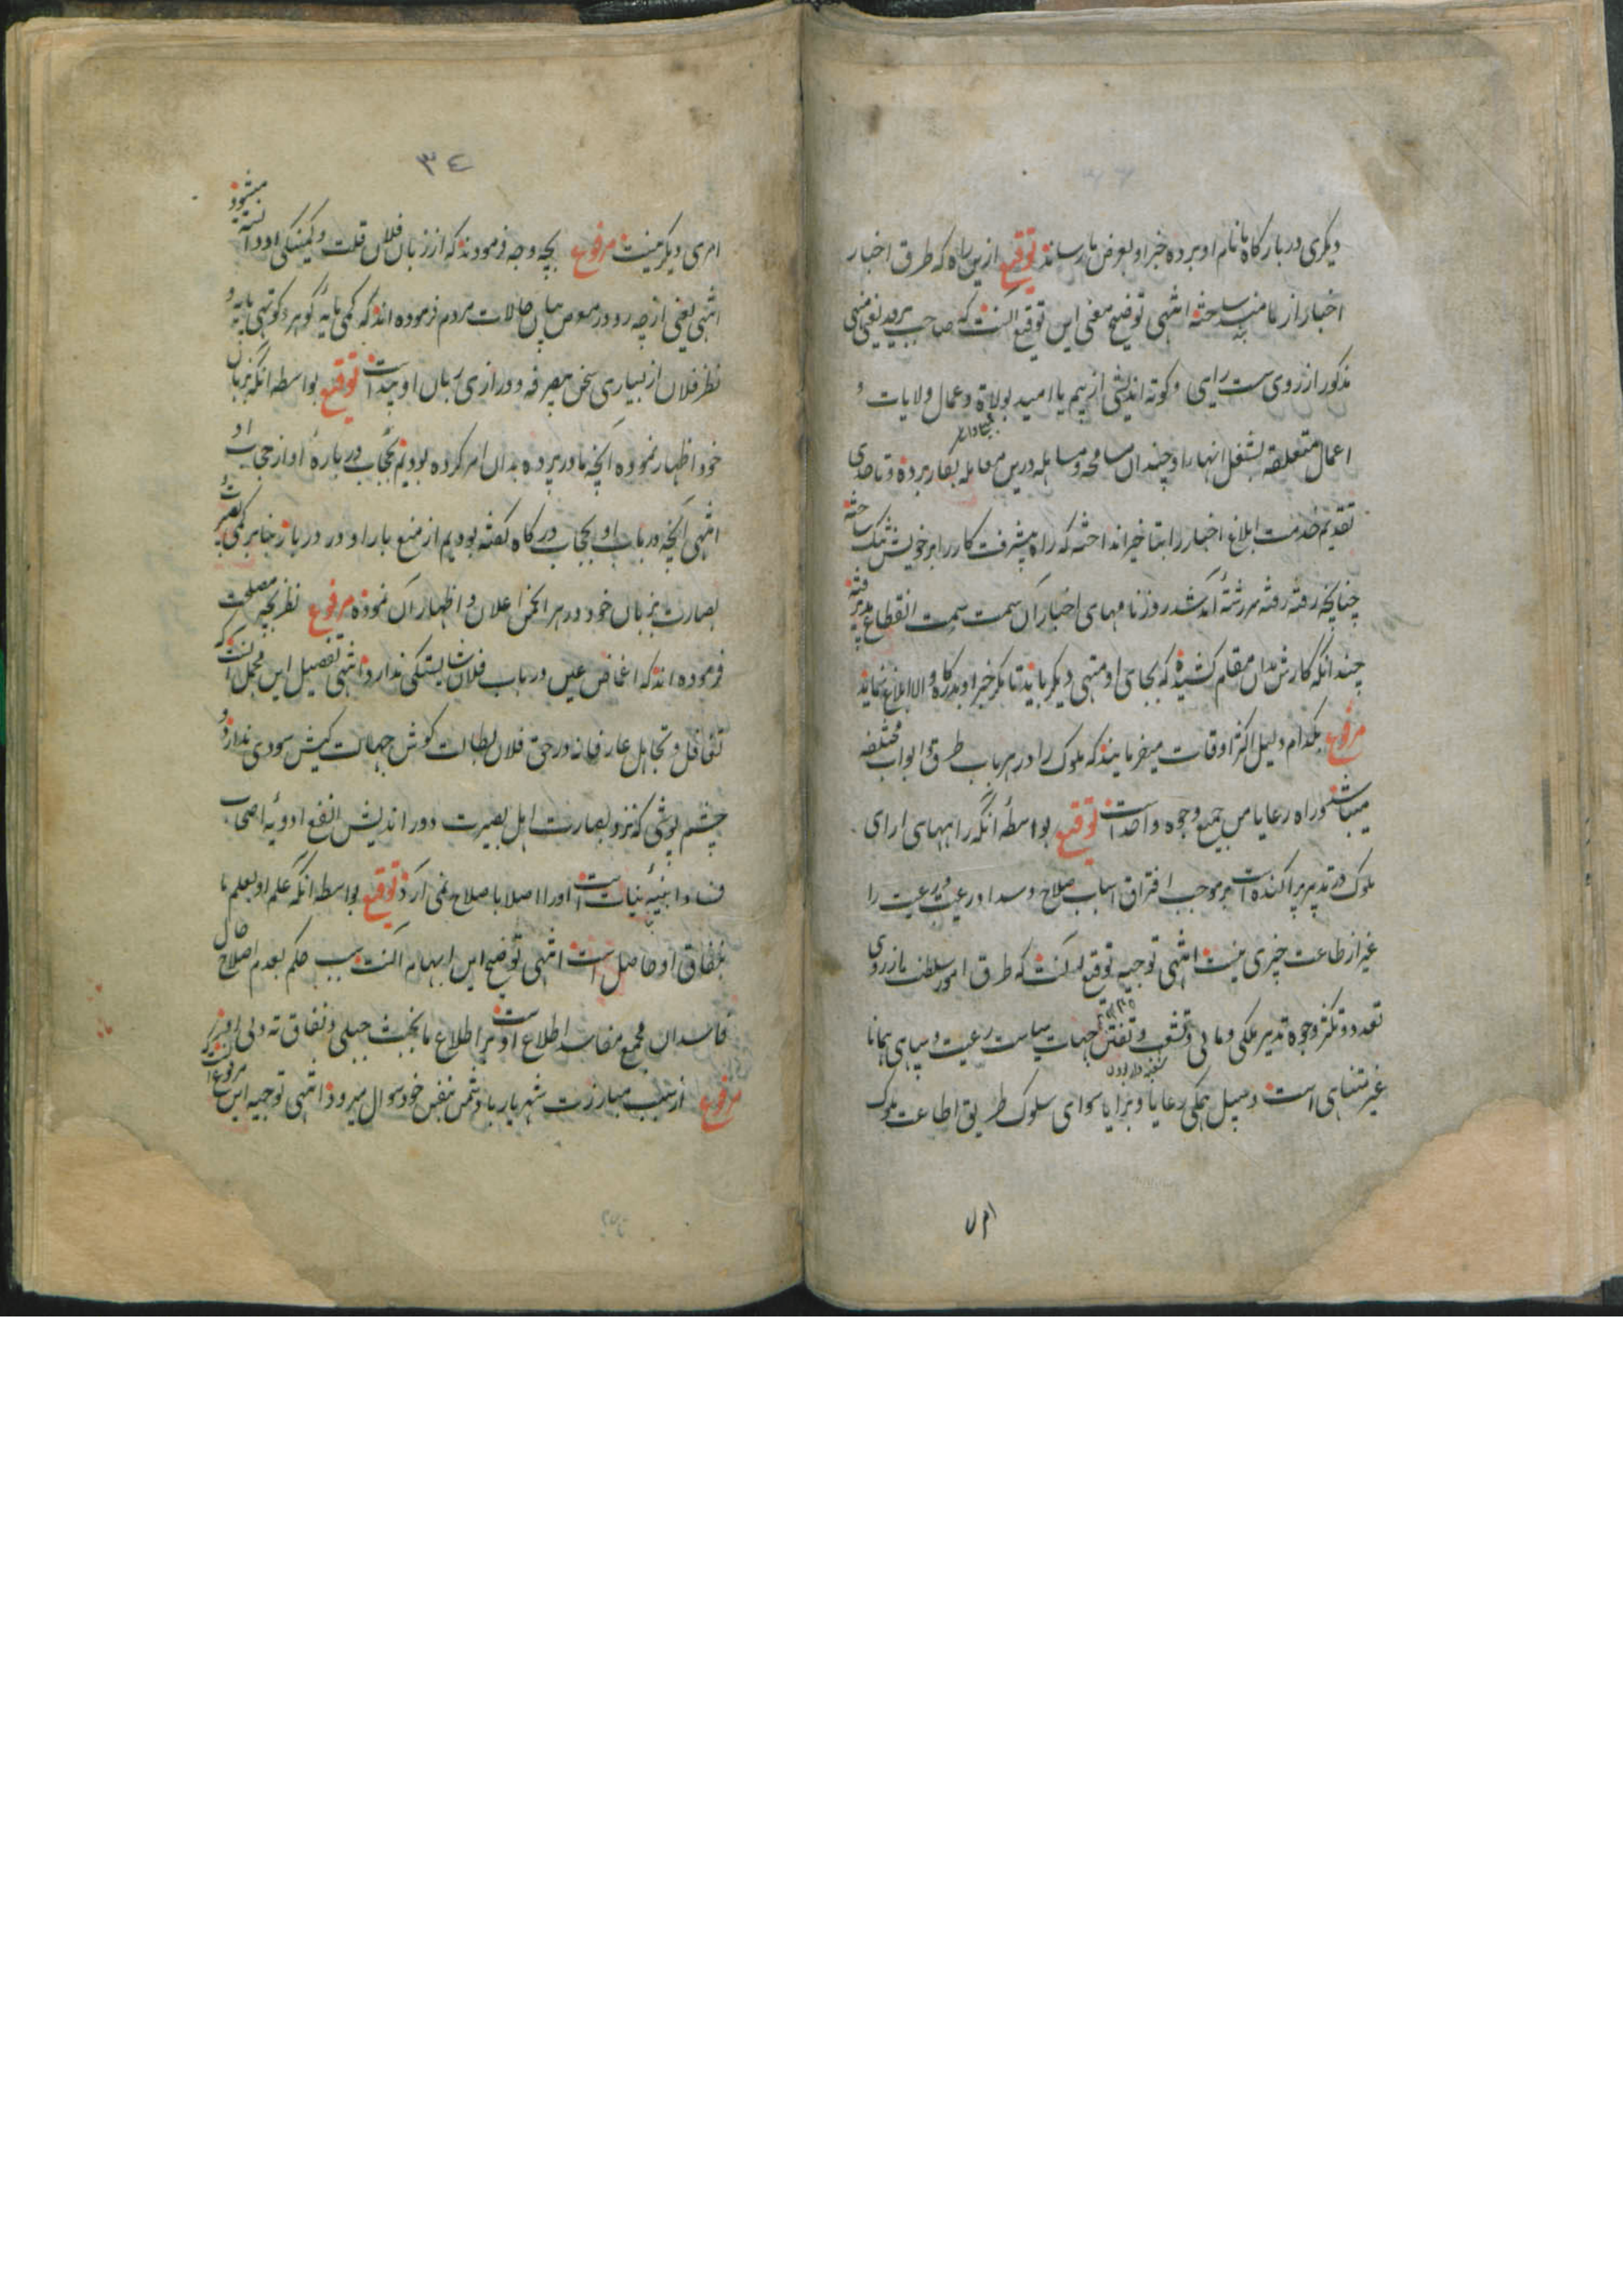 دیگری در بارگاه ما نام او برده خبر او بعرض ما رساند توقیع ازین راه که طرق اخبار
اخبار از ما منسد ساخته انتهی توضیح معنی این توقیع آنست که صاحب برید یعنی منهی
مذکور از روی سست رایی و کوته اندیشی از بیم یا امید بولاة و عمال ولایات و
اعمال متعلقه بشغل انها را و چندان مسامحه و مساهله درین معامله بکار برده و تا حدی
تقدیم خدمت ابلاغ اخبار را بتاخیر انداخته که راه پیشرفت کار را بر خویش تنگ ساخته
چنانچه رفته رفته سررشته آمد شد روزنامهای اخبار آن سمت سمت انقطاع پذیرفته
چندانکه کارش بدان مقام کشیده که بجای او منهی دیگر باید تا بکر خبر او بدرگاه والا ابلاغ نماید
مرفوع بکدام دلیل اکثر اوقات میفرمایند که ملوک را در هر باب طرق و ابواب مختلفه
میباشد و راه رعایا من جمیع وجوه واحد است توقیع بواسطهٔ آنکه راههای ارای
ملوک در تدبیر پراکنده است بر موجب افتراق اسباب صلاح و سداد رعیت و رعیت را
غیر از طاعت چیزی نیست انتهی توجیه توقیع آنست که طرق امور سلطنت از روی
تعدد و تکثر وجوه تدبیر ملکی و مالی و تشعب و تفنن جهات سیاست رعیت و سپاهی همانا
غیر متناهی است و سبیل همگی رعایا و برایا سوای سلوک طریق اطاعت ملوک
امری
٣٤
امری دیگر نیست مرفوع بچه وجه فرمودند که از زبان فلان قلت و کمینگی او دانسته میشود
انتهی یعنی از چه رو در معرض بیان حالات مردم فرموده اند که کمی مایهٔ گوهر و کوتهی پایه و
نظر فلان از بسیاری سخن بیصرفه و درازی زبان او پیداست توقیع بواسطه آنکه بزبان
خود اظهار نموده آنچه ما در پرده بدان امر کرده بودیم بحجاب در بارهٔ او از حجاب او
انتهی آنچه در باب او بحجاب درگاه گفته بودیم از منع بار او در دربار
بصارت بزبان خود در هر انجمن اعلان و اظهار آن نموده مرفوع نظر بچه مصلحت
فرموده اند که اغماض عین در باب فلان شایستگی ندارد انتهی تفصیل این مجمل آنست که
تغافل و تجاهل عارفانه در حق فلان بطالت کوش جهالت کیش سودی ندارد و
چشم پوشی که نزد بصارت اهل بصیرت دور اندیش انفع ادویهٔ اصحاب
فساد ابنیهٔ نیات است او را اصلا باصلاح نمی آرد توقیع بواسطه آنکه علم او بعلم ما
بنفاق او حاصل است انتهی توضیح این ابهام آنست سبب حکم بعدم اصلاح حال
فاسد آن مجمع مفاسد اطلاع اوست بر اطلاع ما بخبث جبلی و نفاق ته دلی او
مرفوع از سبب مبارزت شهریار با دشمن بنفس خود سوال میرود انتهی توجیه این